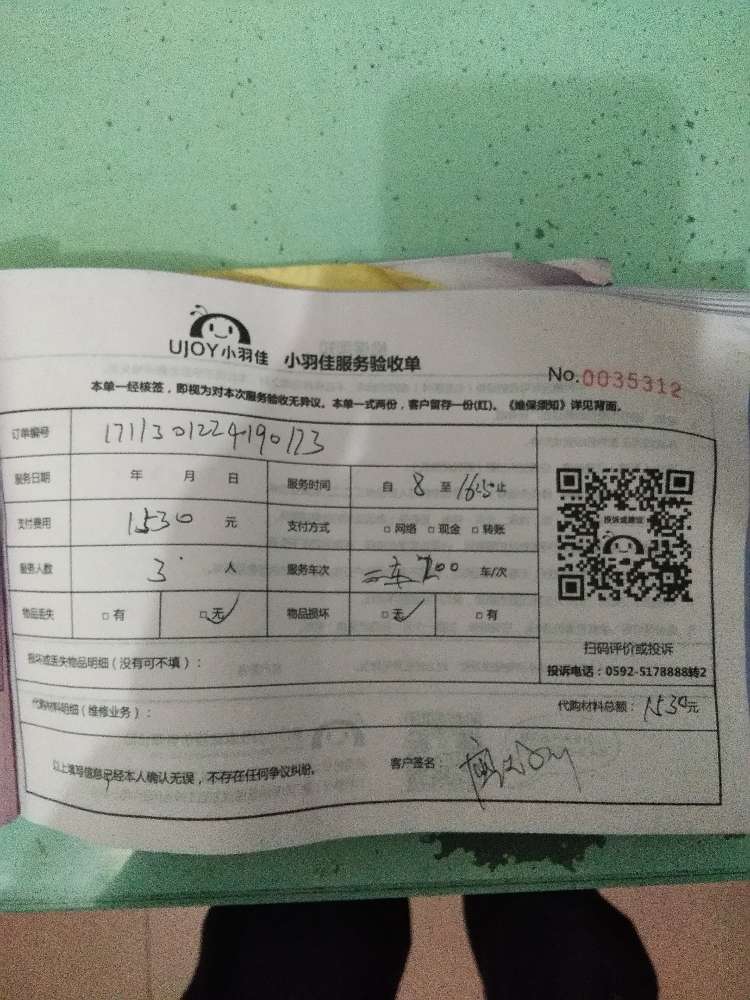 UJOY小羽佳 小羽佳服务验收单
No.0035312
本单一经核签，即视为对本次服务验收无异议。本单一式两份，客户留存一份(红)。《维保须知》详见背面。
订单编号 1711301224190173
服务日期 年 月 日 服务时间 自 8 至 16:5 止
支付费用 1530 元 支付方式 □网络 □现金 □转账
服务人数 3 人 服务车次 二车700 车/次
物品丢失 □有 □无 物品损坏 □无 □有
投诉或建议
扫码评价或投诉
投诉电话：0592-5178888转2
损坏或丢失物品明细（没有可不填）：
代购材料明细（维修业务）： 代购材料总额：1530元
以上填写信息已经本人确认无误，不存在任何争议纠纷。 客户签名：